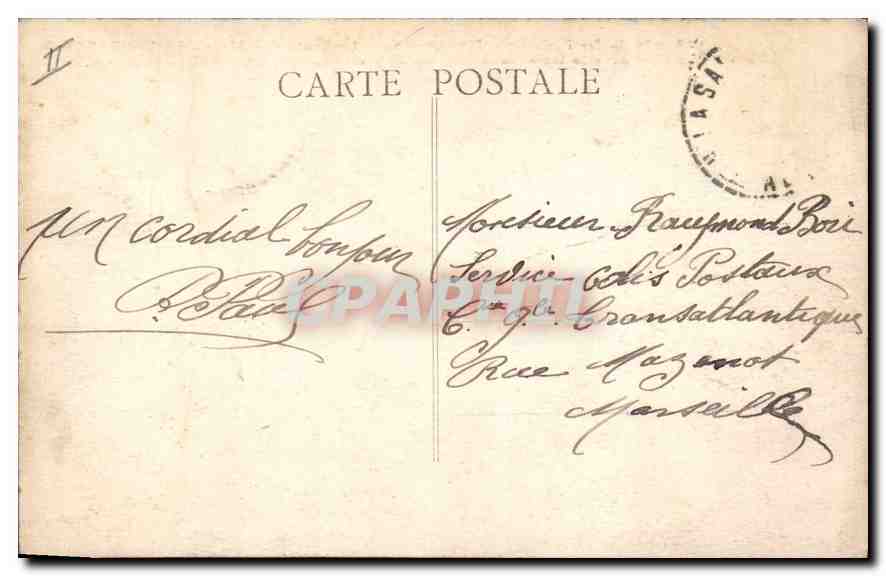 II
CARTE POSTALE
un cordial bonjour
Monsieur Raymond
Service colis Postaux
Cie Gle Transatlantique
Rue Mazenot
Marseille
CPAPHIL